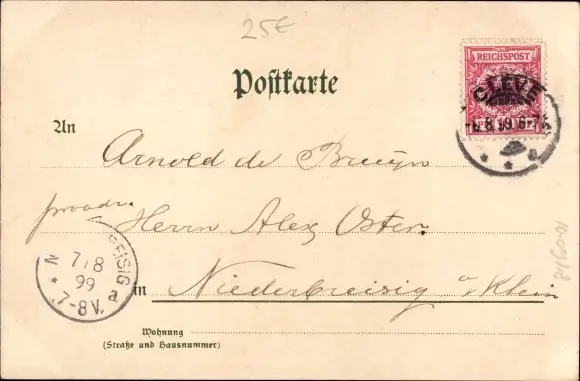 25€
REICHSPOST
CLEVE
8 99 6-7
Postkarte
An
Arnold de Bruijn
Herrn Alex Oster
N. BREISIG
7/8
99
7-8V.
a
in Niederbreisig a/Rhein
Wohnung
(Straße und Hausnummer)